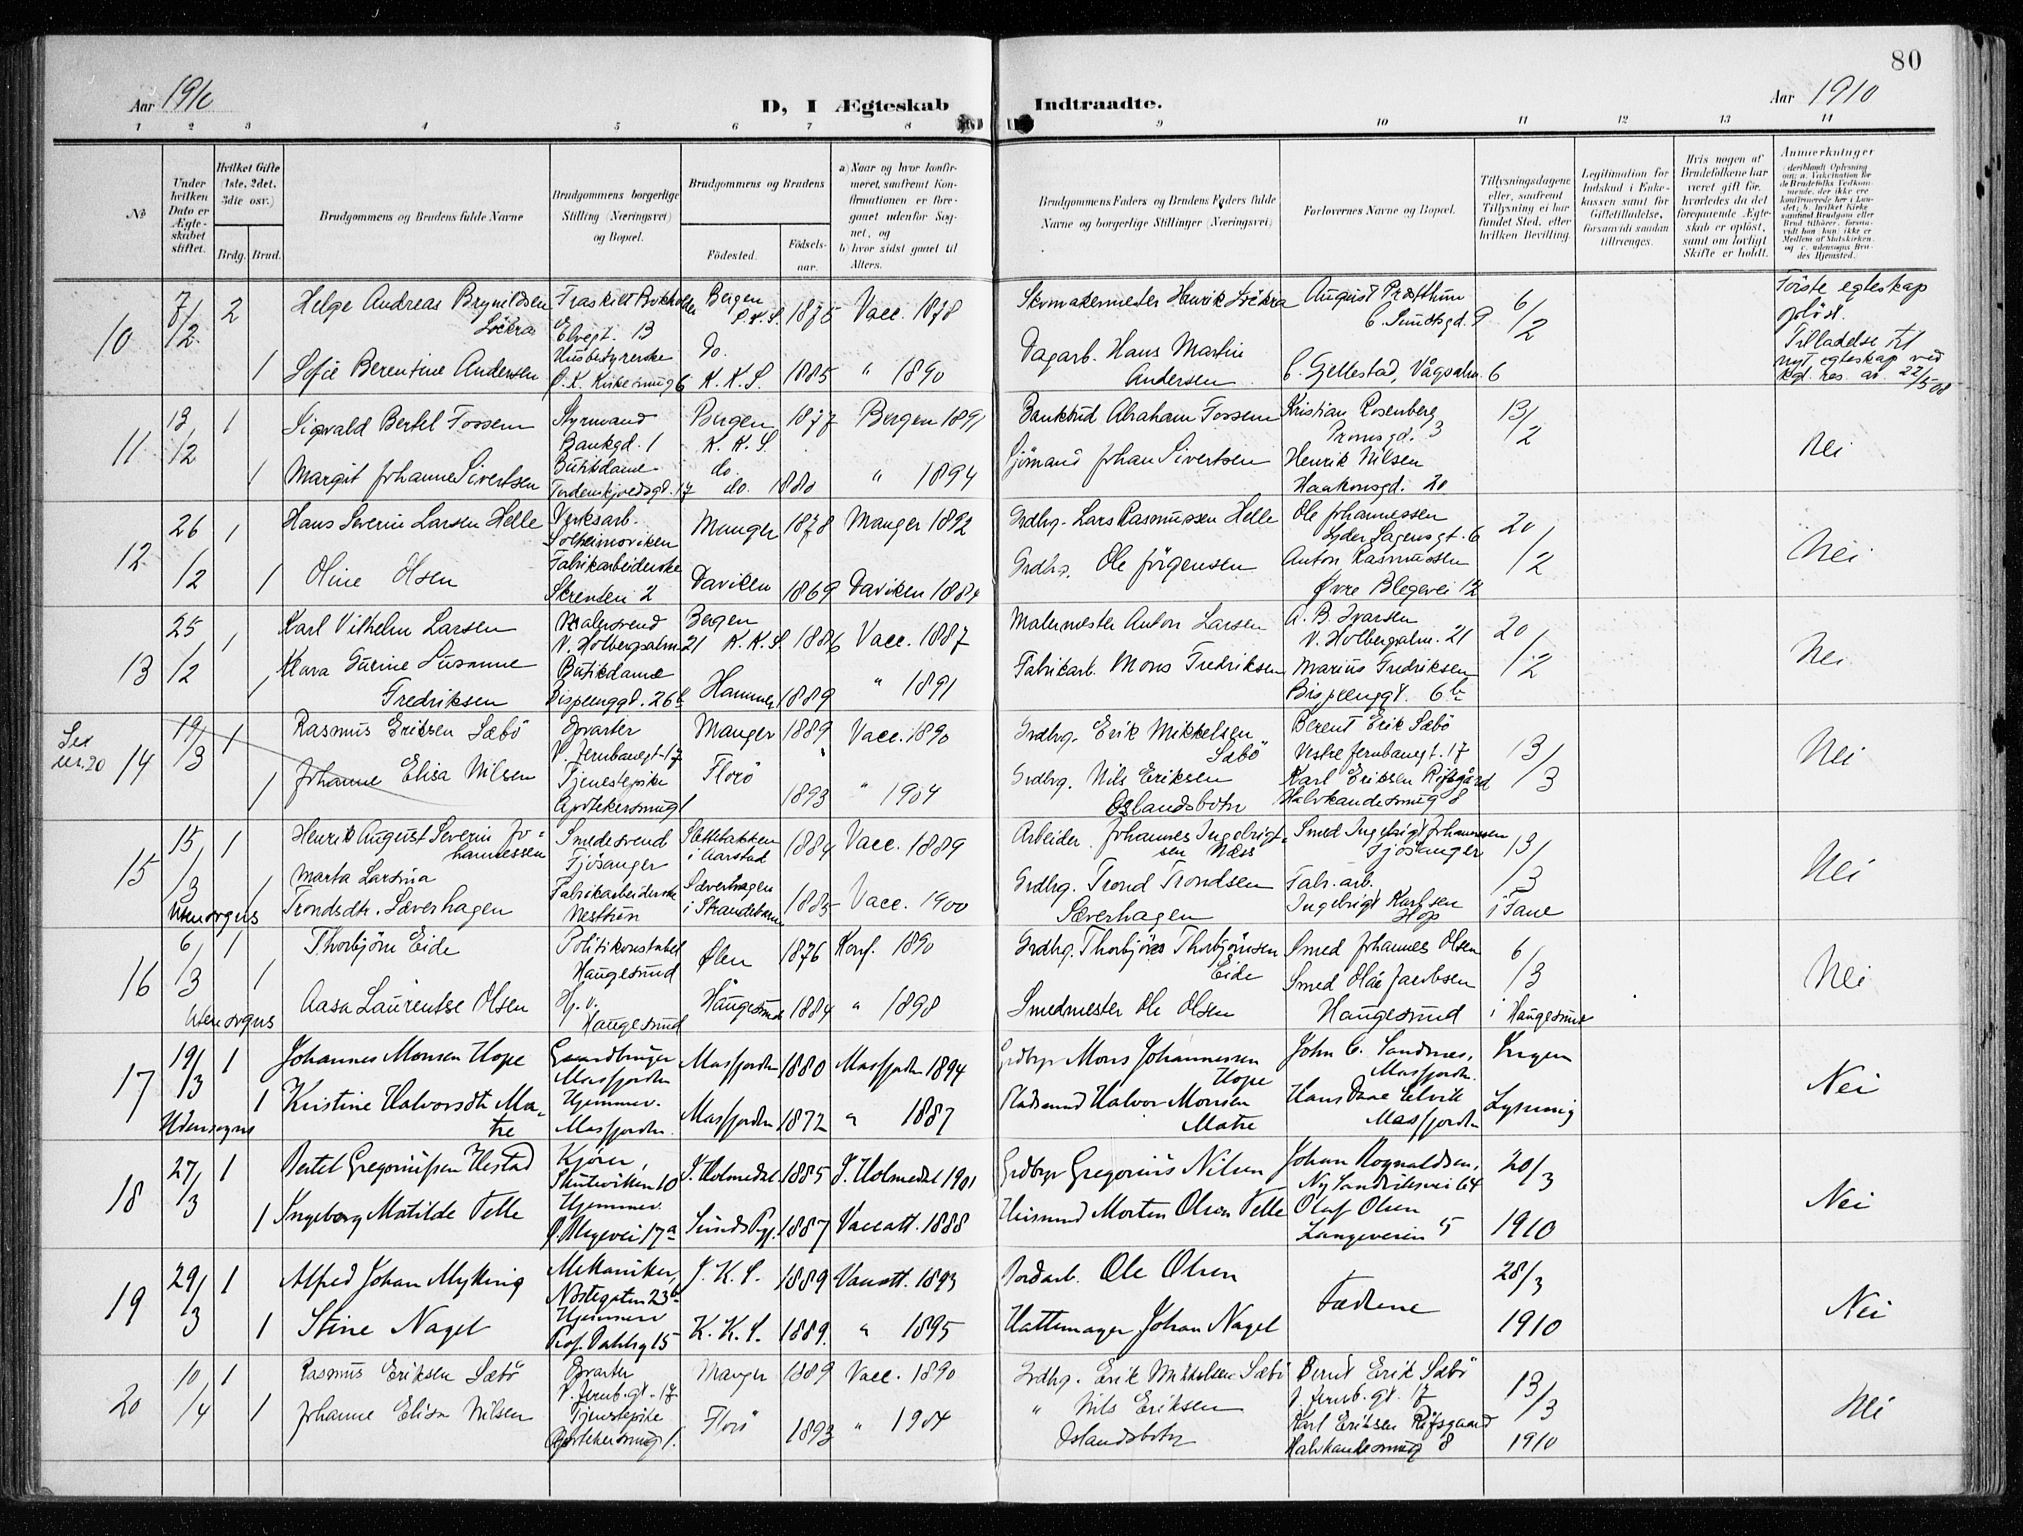 80
Aar 1910
D, I Ægteskab Indtraadte.
Aar 1910
1 2 3 4 5 6 7 8 9 10 11 12 13 14
№
Under hvilken Dato er Ægteskabet stiftet.
Hvilket Gifte (1ste, 2det, 3die osv.)
Brdg. Brud.
Brudgommens og Brudens fulde Navne
Brudgommens borgerlige Stilling (Næringsvei) og Bopæl.
Brudgommens og Brudens
Fødested. Fødselsaar.
a) Naar og hvor konfirmeret, saafremt Konfirmationen er foregaaet udenfor Sognet, og
b) hvor sidst gaaet til Alters.
Brudgommens Faders og Brudens Faders fulde Navne og borgerlige Stillinger (Næringsvei)
Forlovernes Navne og Bopæl.
Tillysningsdagene eller, saafremt Tillysning ei har fundet Sted, efter hvilken Bevilling.
Legitimation for Indskud i Enkekassen samt for Giftetilladelse, forsaavidt saadan tiltrænges.
Hvis nogen af Brudefolkene har været gift før, hvorledes da det foregaaende Ægteskab er opløst, samt om lovligt Skifte er holdt.
Anmerkninger
10 7/12 2 Helge Andreas Brynildsen
Bergen 1875 Vacc. 1878
Skomakermester Henrik
August
6/2
Første egteskap
opløst.
Tilladelse til
nyt egteskap ved
kgl. res. av 22/5 08
1 Sofie Berentine Andersen
Elvegt. 13
Husbestyrerske
Ø. K. Kirkesmug 6
do.
K. K. S. 1885 " 1890
Dagarb. Hans Martin
Andersen
C. Gjellestad, Vågsalm. 6
11 13/12 1 Sigvald Bertel Fossem
Styrmand
Bankgd. 1
Bergen
K. K. S. 1877 Bergen 1891
Bankbud Abraham Fossem
Kristian Rosenberg
3
13/2
Nei
1 Margit Johanne Sivertsen
Butikdame
Tordenskjoldsgt. 17
do.
do. 1880 " 1894
Sjömand Johan Sivertsen
Henrik Nilsen
Haakonsgd. 20
12 26/12 1 Hans Severin Larsen Helle
Verksarb.
Solheimsviken
Manger 1878 Manger 1892
Grdbrg. Lars Rasmussen Helle
Ole Johannessen
Lyder Sagensgt. 6
20/12
Nei
1 Oline Olsen
Fabrikarbeiderske
Skrenten 2
Daviken 1869 Daviken 1884
Grdbrg. Ole Jörgensen
Anton Rasmussen
Øvre Blegevei 12
13 25/12 1 Karl Vilhelm Larsen
Malersvend
N. Holbergsalm. 21
Bergen
K. K. S. 1886 Vacc. 1887
Malermester Anton Larsen
A. B. Ivarsen
N. Holbergsalm. 21
20/12
Nei
1 Kara Gurine Susanne
Fredriksen
Butikdame
Bispenggt. 26b
Hammer 1889 " 1891
Fabrikarb. Mons Fredriksen
Marius Fredriksen
Bispenggt. 6b
Se
nr. 20
14 19/3 1 Rasmus Eriksen Sæbö
Opvarter
V. Jernbanegt. 17
Manger 1889 Vacc. 1890
Grdbrg. Erik Mikkelsen
Sæbö
Berent Erik Sæbö
Vestre Jernbanegt. 17
13/3
Nei
1 Johanne Elisa Nilsen
Tjenestepike
Apotekersmug 1
Florö 1893 " 1904
Grdbrg. Nils Eriksen
Oslandsbotn
Karl Eriksen Rifsgård
Halvkandesmug 8
15 15/3 1 Henrik August Severin Jo-
hannessen
Smedesvend
Fjösanger
Slettebakken
i Aarstad 1884 Vacc. 1889
Arbeider Johannes Ingebrigt-
sen Næss
Smed Ingebrigt Johannessen
Fjösanger
13/3
Nei
utensogns
1 Marta Larsina
Trondsdtr. Sæverhagen
Fabrikarbeiderske
Nesttun
Sæverhagen
i Strandebarm 1885 Vacc. 1900
Grdbrg. Trond Trondsen
Sæverhagen
Fabr. arb.
Ingebrigt Karlsen
Hop
i Fane
16 6/3 1 Thorbjörn Eide
Politikonstabel
Haugesund
Ølen 1876 Konf. 1890
Grdbrg. Thorbjörn Thorbjörnsen
Eide
Smed Johannes Olsen
Smed Olai Jacobsen
6/3
Nei
utensogns
1 Aasa Laurentse Olsen
Hj. v.
Haugesund
Haugesund 1884 " 1898
Smedmester Ole Olsen
Haugesund
i Haugesund
17 19/3 1 Johannes Monsen Hope
Gaardbruger
Masfjorden
Masfjorden 1880 Masfjorden 1894
Grdbgr Mons Johannessen
Hope
John C. Sandnes,
Masfjorden.
Ingen
Nei
Udensogns
1 Kristine Halvorsdtr Ma-
tre
Hjemmev.
Masfjorden.
Masfjorden 1872 " 1887
Pladsmand Halvor Monsen
Matre
Hans Dane Elvik
Masfjorden
Lysning
18 27/3 1 Bertel Gregoriussen Hestad
Kjörer,
Skuteviken 10
I. Holmedal 1885 I. Holmedal 1901
Grdbgr Gregorius Nilsen
Johan Rognaldsen,
Ny Sandviksvei 64
20/3
Nei
1 Ingeborg Matilde Telle
Hjemmev.
Ø. Blegevei 17a
Sunds Pgj. 1887 Vacc att. 1888
Husmand Morten Olsen Telle
Olaf Olsen
Langeveien 5
1910
19 29/3 1 Alfred Johan Myking
Mekaniker,
Nöstegaten 23b
J. K. S. 1889 Vacc att. 1893
Jordarb. Ole Olsen
Fædrene
28/3
Nei
1 Stine Nagel
Hjemmev
Prof. Dahlsg 15
K. K. S. 1889. " 1895
Hattemager Johan Nagel
1910
20 10/4 1 Rasmus Eriksen Sæbö
Opvarter
V. Jernb. gt. 17
Manger 1889 Vacc. 1890
Grdbrg. Erik Mikkelsen Sæbö
Bernt Erik Sæbö
V. Jernb. gt. 17
13/3
Nei
1 Johanne Elisa Nilsen
Tjenestepike
Apotekersmug 1.
Florö 1893 " 1904
" Nils Eriksen
Oslandsbotn
Karl Eriksen Rifsgaard
Halvkandesmug 8
1910